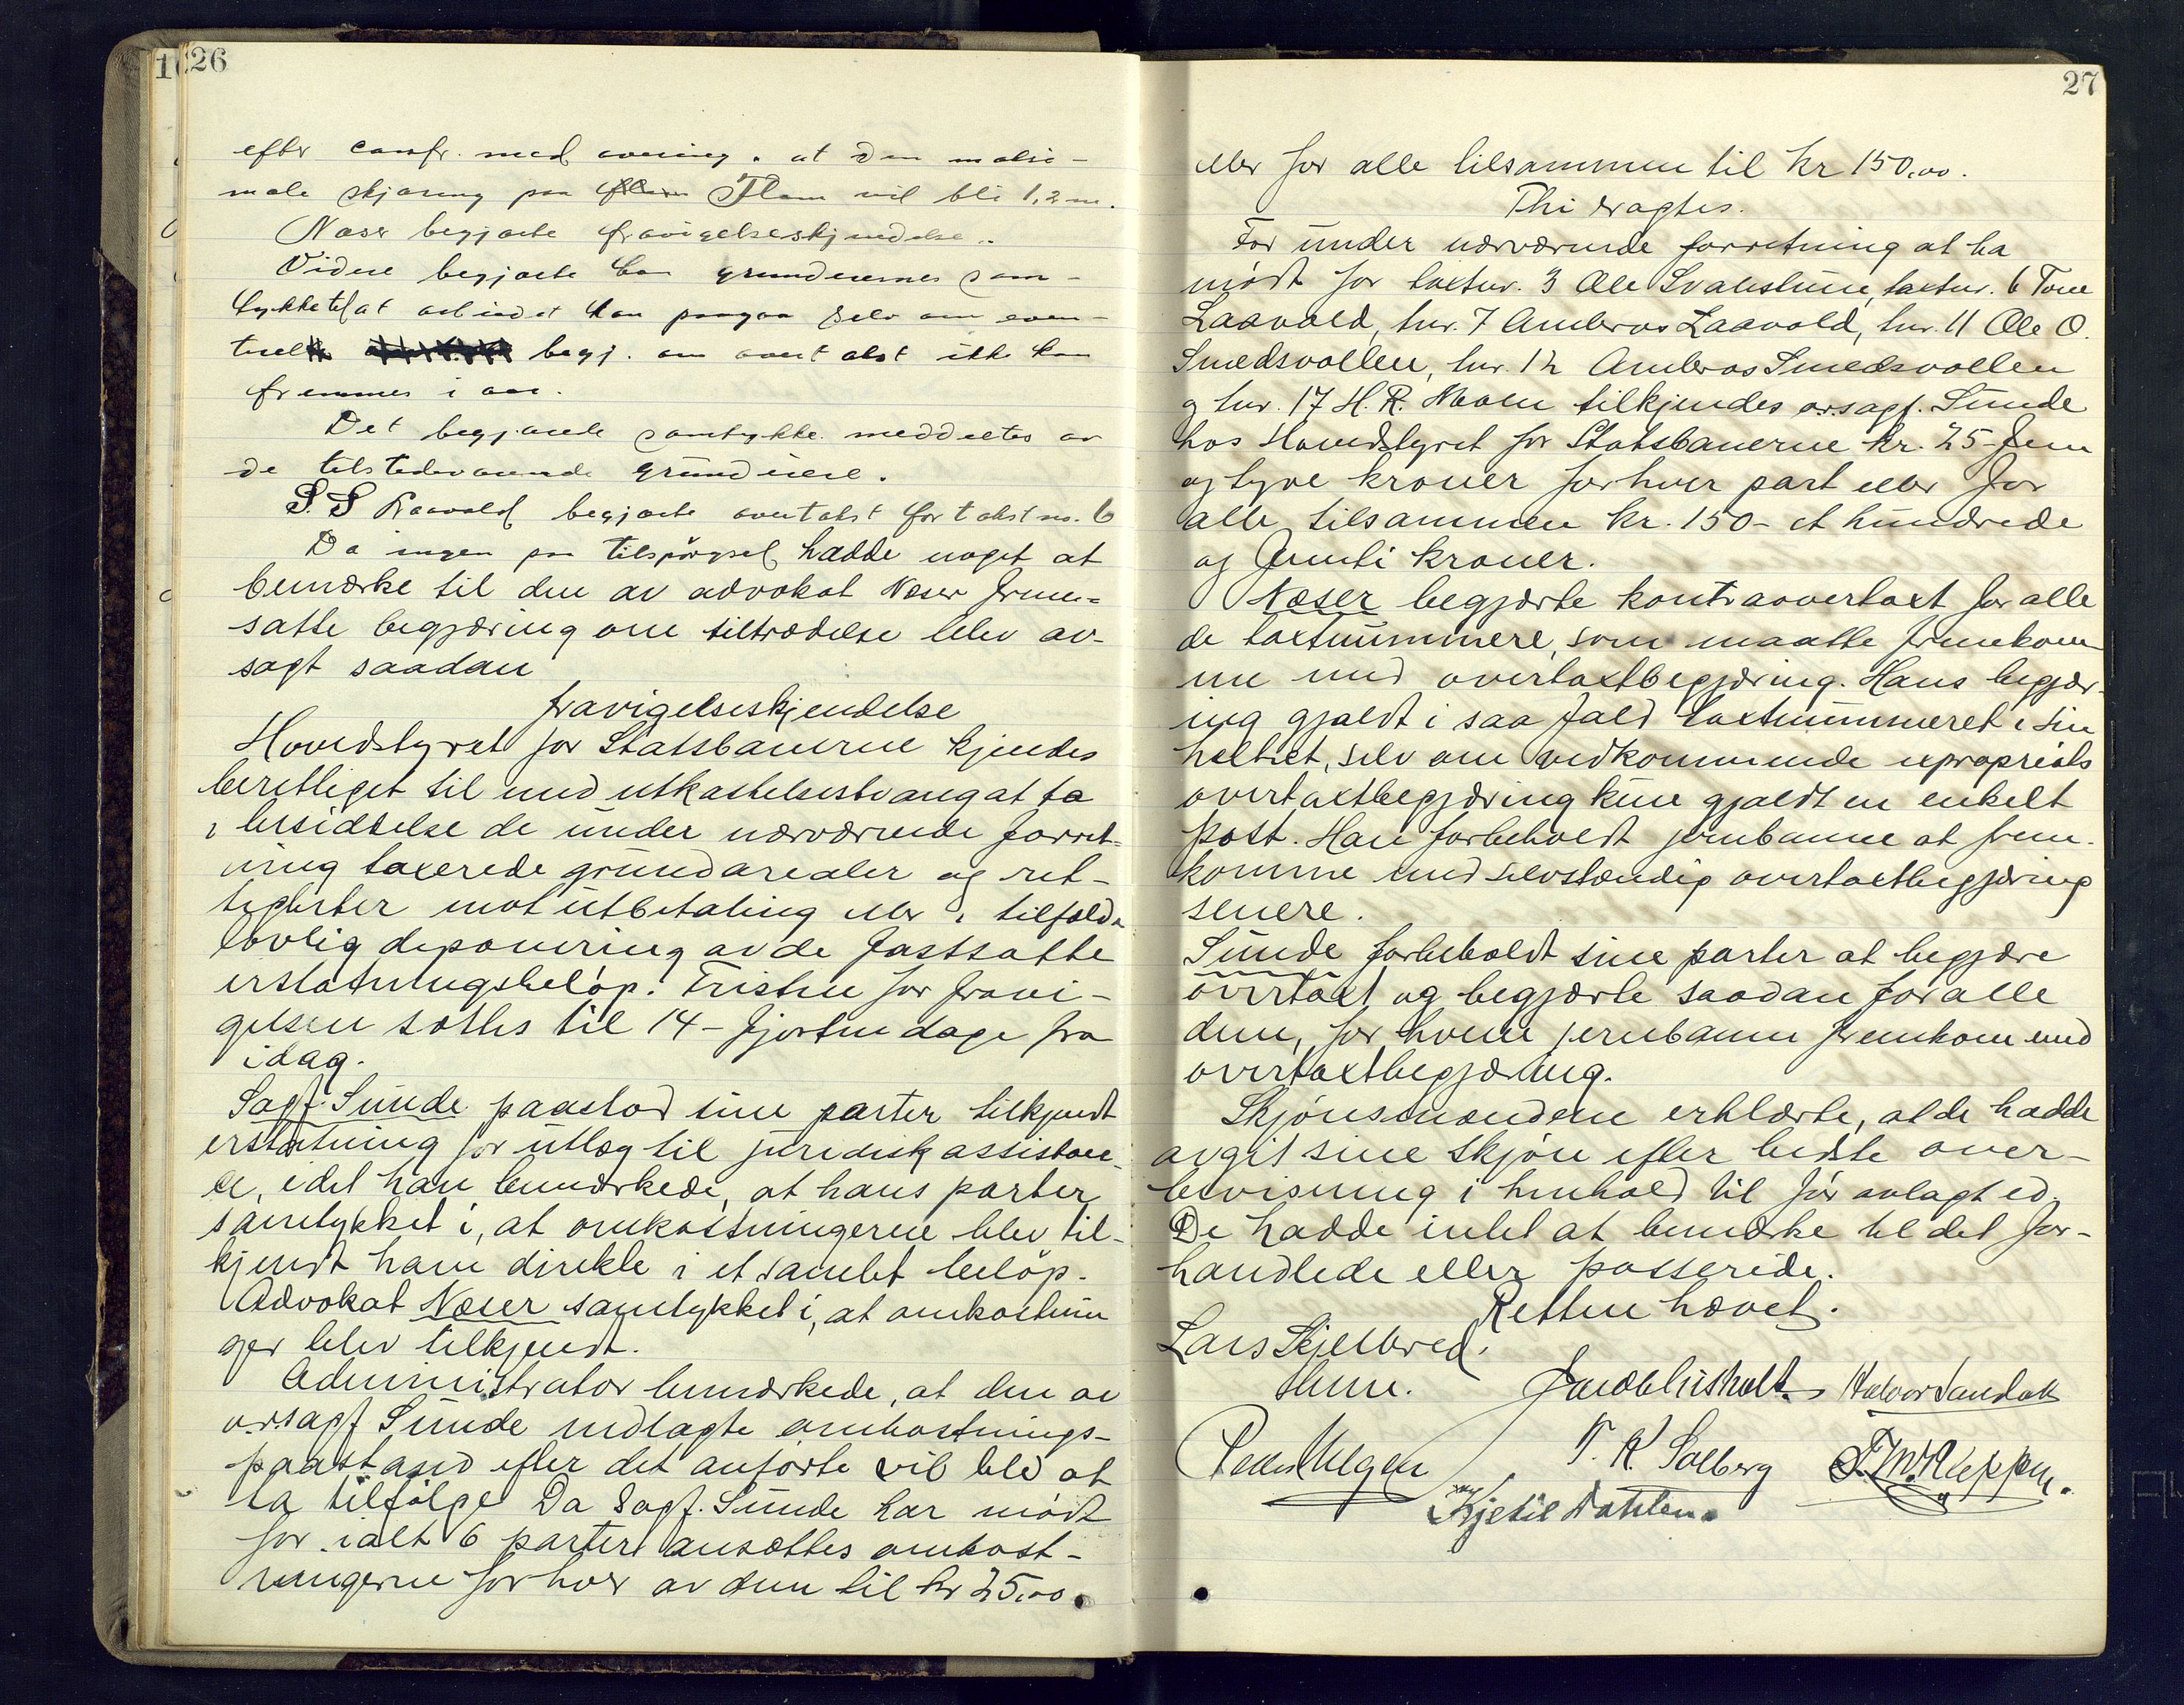 26
efter confr. med avening. at den maksi-
male skjæring paa Flom vil bli 1,2 m.
Næser begjærte fravigelseskjendelse.
Videre begjærte han grundeiernes sam-
tykke til at arbeidet kan paagaa selv om even-
tuelle begj. om overtakst ikke kan
fremmes i aar.
Det begjærte samtykke meddeltes av
de tilstedeværende grundeiere.
S. S Laavold begjærte overtakst for takst no. 6
Da ingen paa tilspørgsel hadde noget at
bemærke til den av advokat Næser frem-
satte begjæring om tiltrædelse blev av-
sagt saadan
fravigelseskjendelse
Hovedstyret for Statsbanerne kjendes
berettiget til med utkastelsestvang at ta
i besiddelse de under nærværende forret-
ning taxerede grundarealer og ret-
tigheter mot utbetaling eller i tilfælde
lovlig deponering av de fastsatte
erstatningsbeløp. Fristen for fravi-
gelsen sættes til 14 - fjorten dage fra
idag.
Sagf. Sunde paastod sine parter tilkjendt
erstatning for utlæg til juridisk assistan-
ce, idet han bemærkede, at hans parter
samtykket i, at omkostningerne blev til-
kjendt ham direkte i et samlet beløp.
Advokat Næser samtykket i, at omkostnin
ger blev tilkjendt.
Administrator bemærkede, at den av
o.r.sagf Sunde nedlagte omkostnings-
paastand efter det anførte vil bli at
ta tilfølge Da Sagf. Sunde har mødt
for ialt 6 parter ansættes omkost-
ningerne for hver av dem til kr 25,00.
27
eller for alle tilsammen til kr 150,00.
Thi eragtes.
For under nærværende forretning at ha
mødt for taxtnr. 3 Ole Svalastuen, taxtnr. 6 Tone
Laavold, tnr. 7 Ambros Laavold, tnr. 11 Ole O.
Smedsvollen, tnr. 12 Ambros Smedsvollen
og tnr. 17 H. R. Moen tilkjendes o.r.sagf. Sunde
hos Hovedstyret for Statsbanerne kr. 25 - fem
og tyve kroner for hver part eller for
alle tilsammen kr. 150 - et hundrede
og femti kroner.
Næser begjærte kontraovertaxt for alle
de taxtnummere, som maatte fremkom-
me med overtaxtbegjæring. Hans begjær-
ing gjaldt i saa fald taxtnummeret i sin
helhet, selv om vedkommende expropriats
overtaxtbegjæring kun gjaldt en enkelt
post. Han forbeholdt jernbanen at frem-
komme med selvstændig overtaxtbegjæring
senere.
Sunde forbeholdt sine parter at begjære
overtaxt og begjærte saadan for alle
dem, for hvem jernbanen fremkom med
overtaxtbegjæring.
Skjønsmændene erklærte, at de hadde
avgit sine skjøn efter bedste over-
bevisning i henhold til før avlagt ed.
De hadde intet at bemærke til det for-
handlede eller passerede.
Retten hævet.
Lars Skjelbred.
Halvor Sandok
T. K. Solberg
Kjetil Dahlen.